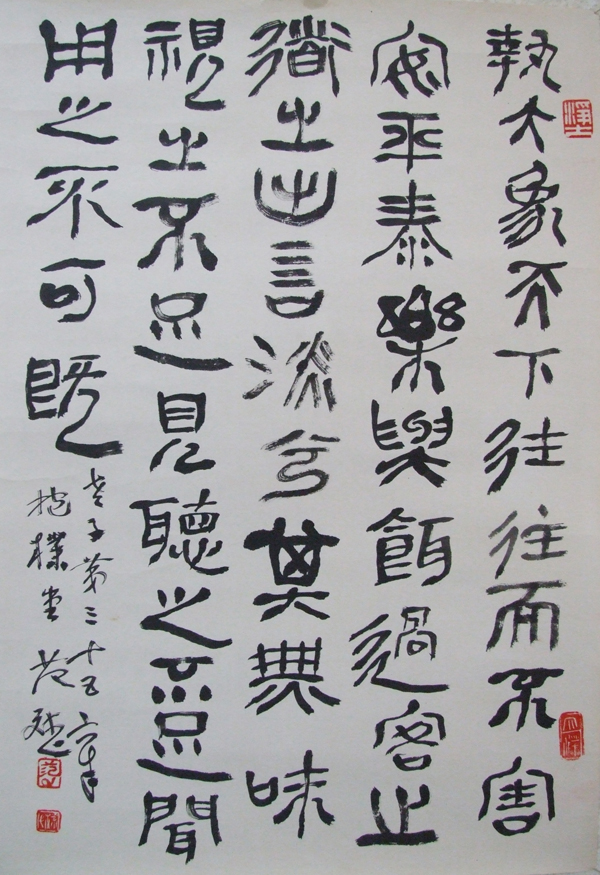 執大象天下往往而不害
安平泰樂與餌過客止
道之出言淡兮其無味
視之不足見聽之不足聞
用之不可既
老子第三十五章
抱樸堂范